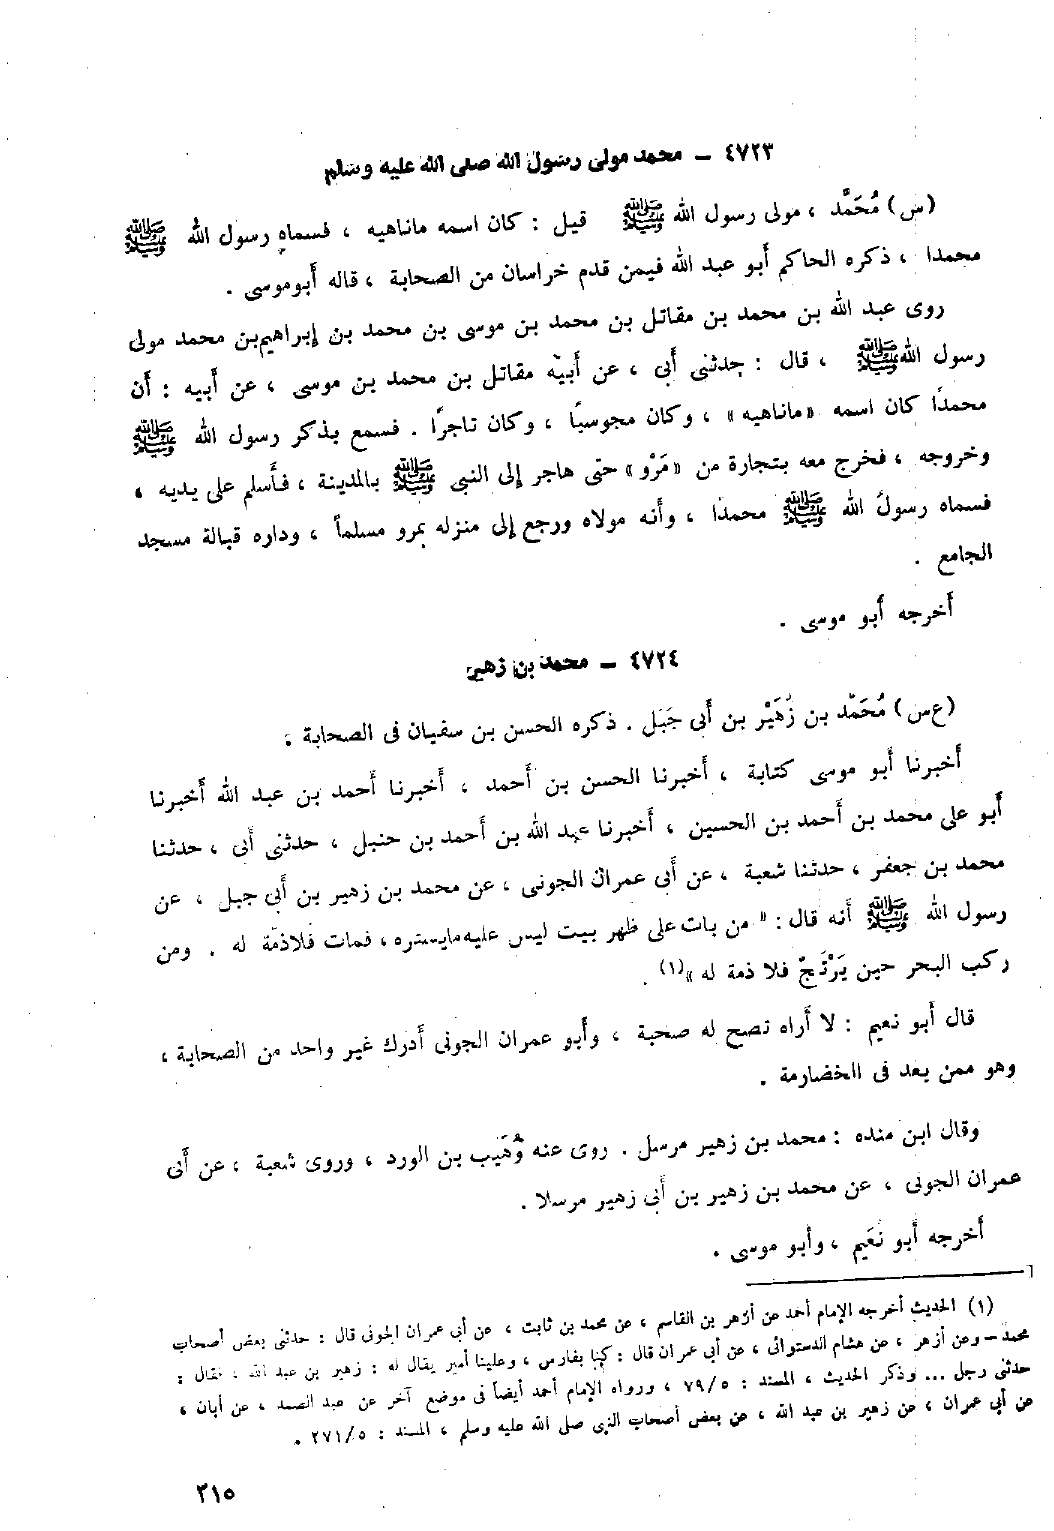 ٤٧٢٣ – محمد مولى رسول الله صلى الله عليه وسلم
(س) مُحَمَّد ، مولى رسول الله ﷺ قيل : كان اسمه ماناهيه ، فسماه رسول الله ﷺ
محمدا ، ذكره الحاكم أبو عبد الله فيمن قدم خراسان من الصحابة ، قاله أبوموسى .
روى عبد الله بن محمد بن مقاتل بن محمد بن موسى بن محمد بن إبراهيم بن محمد مولى
رسول الله ﷺ ، قال : حدثنى أبى ، عن أبيه مقاتل بن محمد بن موسى ، عن أبيه : أن
محمدًا كان اسمه «ماناهيه» ، وكان مجوسيًا ، وكان تاجرًا . فسمع بذكر رسول الله ﷺ
وخروجه ، فخرج معه بتجارة من «مَرْو» حتى هاجر إلى النبى ﷺ بالمدينة ، فأَسلم على يديه ،
فسماه رسولُ الله ﷺ محمدًا ، وأنه مولاه ورجع إلى منزله بمرو مسلماً ، وداره قبالة مسجد
الجامع .
أخرجه أبو موسى .
٤٧٢٤ – محمد بن زهير
(ع س) مُحَمّد بن زُهَيْر بن أَبى جَبَل . ذكره الحسن بن سفيان فى الصحابة .
أخبرنا أبو موسى كتابة ، أخبرنا الحسن بن أحمد ، أخبرنا أحمد بن عبد الله أخبرنا
أبو على محمد بن أحمد بن الحسين ، أخبرنا عبد الله بن أحمد بن حنبل ، حدثنى أبى ، حدثنا
محمد بن جعفر ، حدثنا شعبة ، عن أبى عمران الجونى ، عن محمد بن زهير بن أبى جبل ، عن
رسول الله ﷺ أنه قال : « من بات على ظهر بيت ليس عليه مايستره ، فمات فلاذمّة له . ومن
ركب البحر حين يَرْتَجّ فلا ذمة له »(١) .
قال أبو نعيم : لا أراه تصح له صحبة ، وأبو عمران الجونى أدرك غير واحد من الصحابة ،
وهو ممن يعد فى الخضارمة .
وقال ابن منده : محمد بن زهير مرسل . روى عنه وُهَيب بن الورد ، وروى شعبة ، عن أبى
عمران الجونى ، عن محمد بن زهير بن أبى زهير مرسلا .
أخرجه أبو نعَيم ، وأبو موسى .
(١) الحديث أخرجه الإمام أحمد عن أزهر بن القاسم ، عن محمد بن ثابت ، عن أبى عمران الجونى قال : حدثنى بعض أصحاب
محمد – وعن أزهر ، عن هشام الدستوائى ، عن أبى عمران قال : كنا بفارس ، وعلينا أمير يقال له : زهير بن عبد الله ، فقال :
حدثنى رجل ... وذكر الحديث ، المسند : ٧٩/٥ ، ورواه الإمام أحمد أيضاً فى موضع آخر عن عبد الصمد ، عن أبان ،
عن أبى عمران ، عن زهير بن عبد الله ، عن بعض أصحاب النبى صلى الله عليه وسلم ، المسند : ٢٧١/٥ .
٣١٥